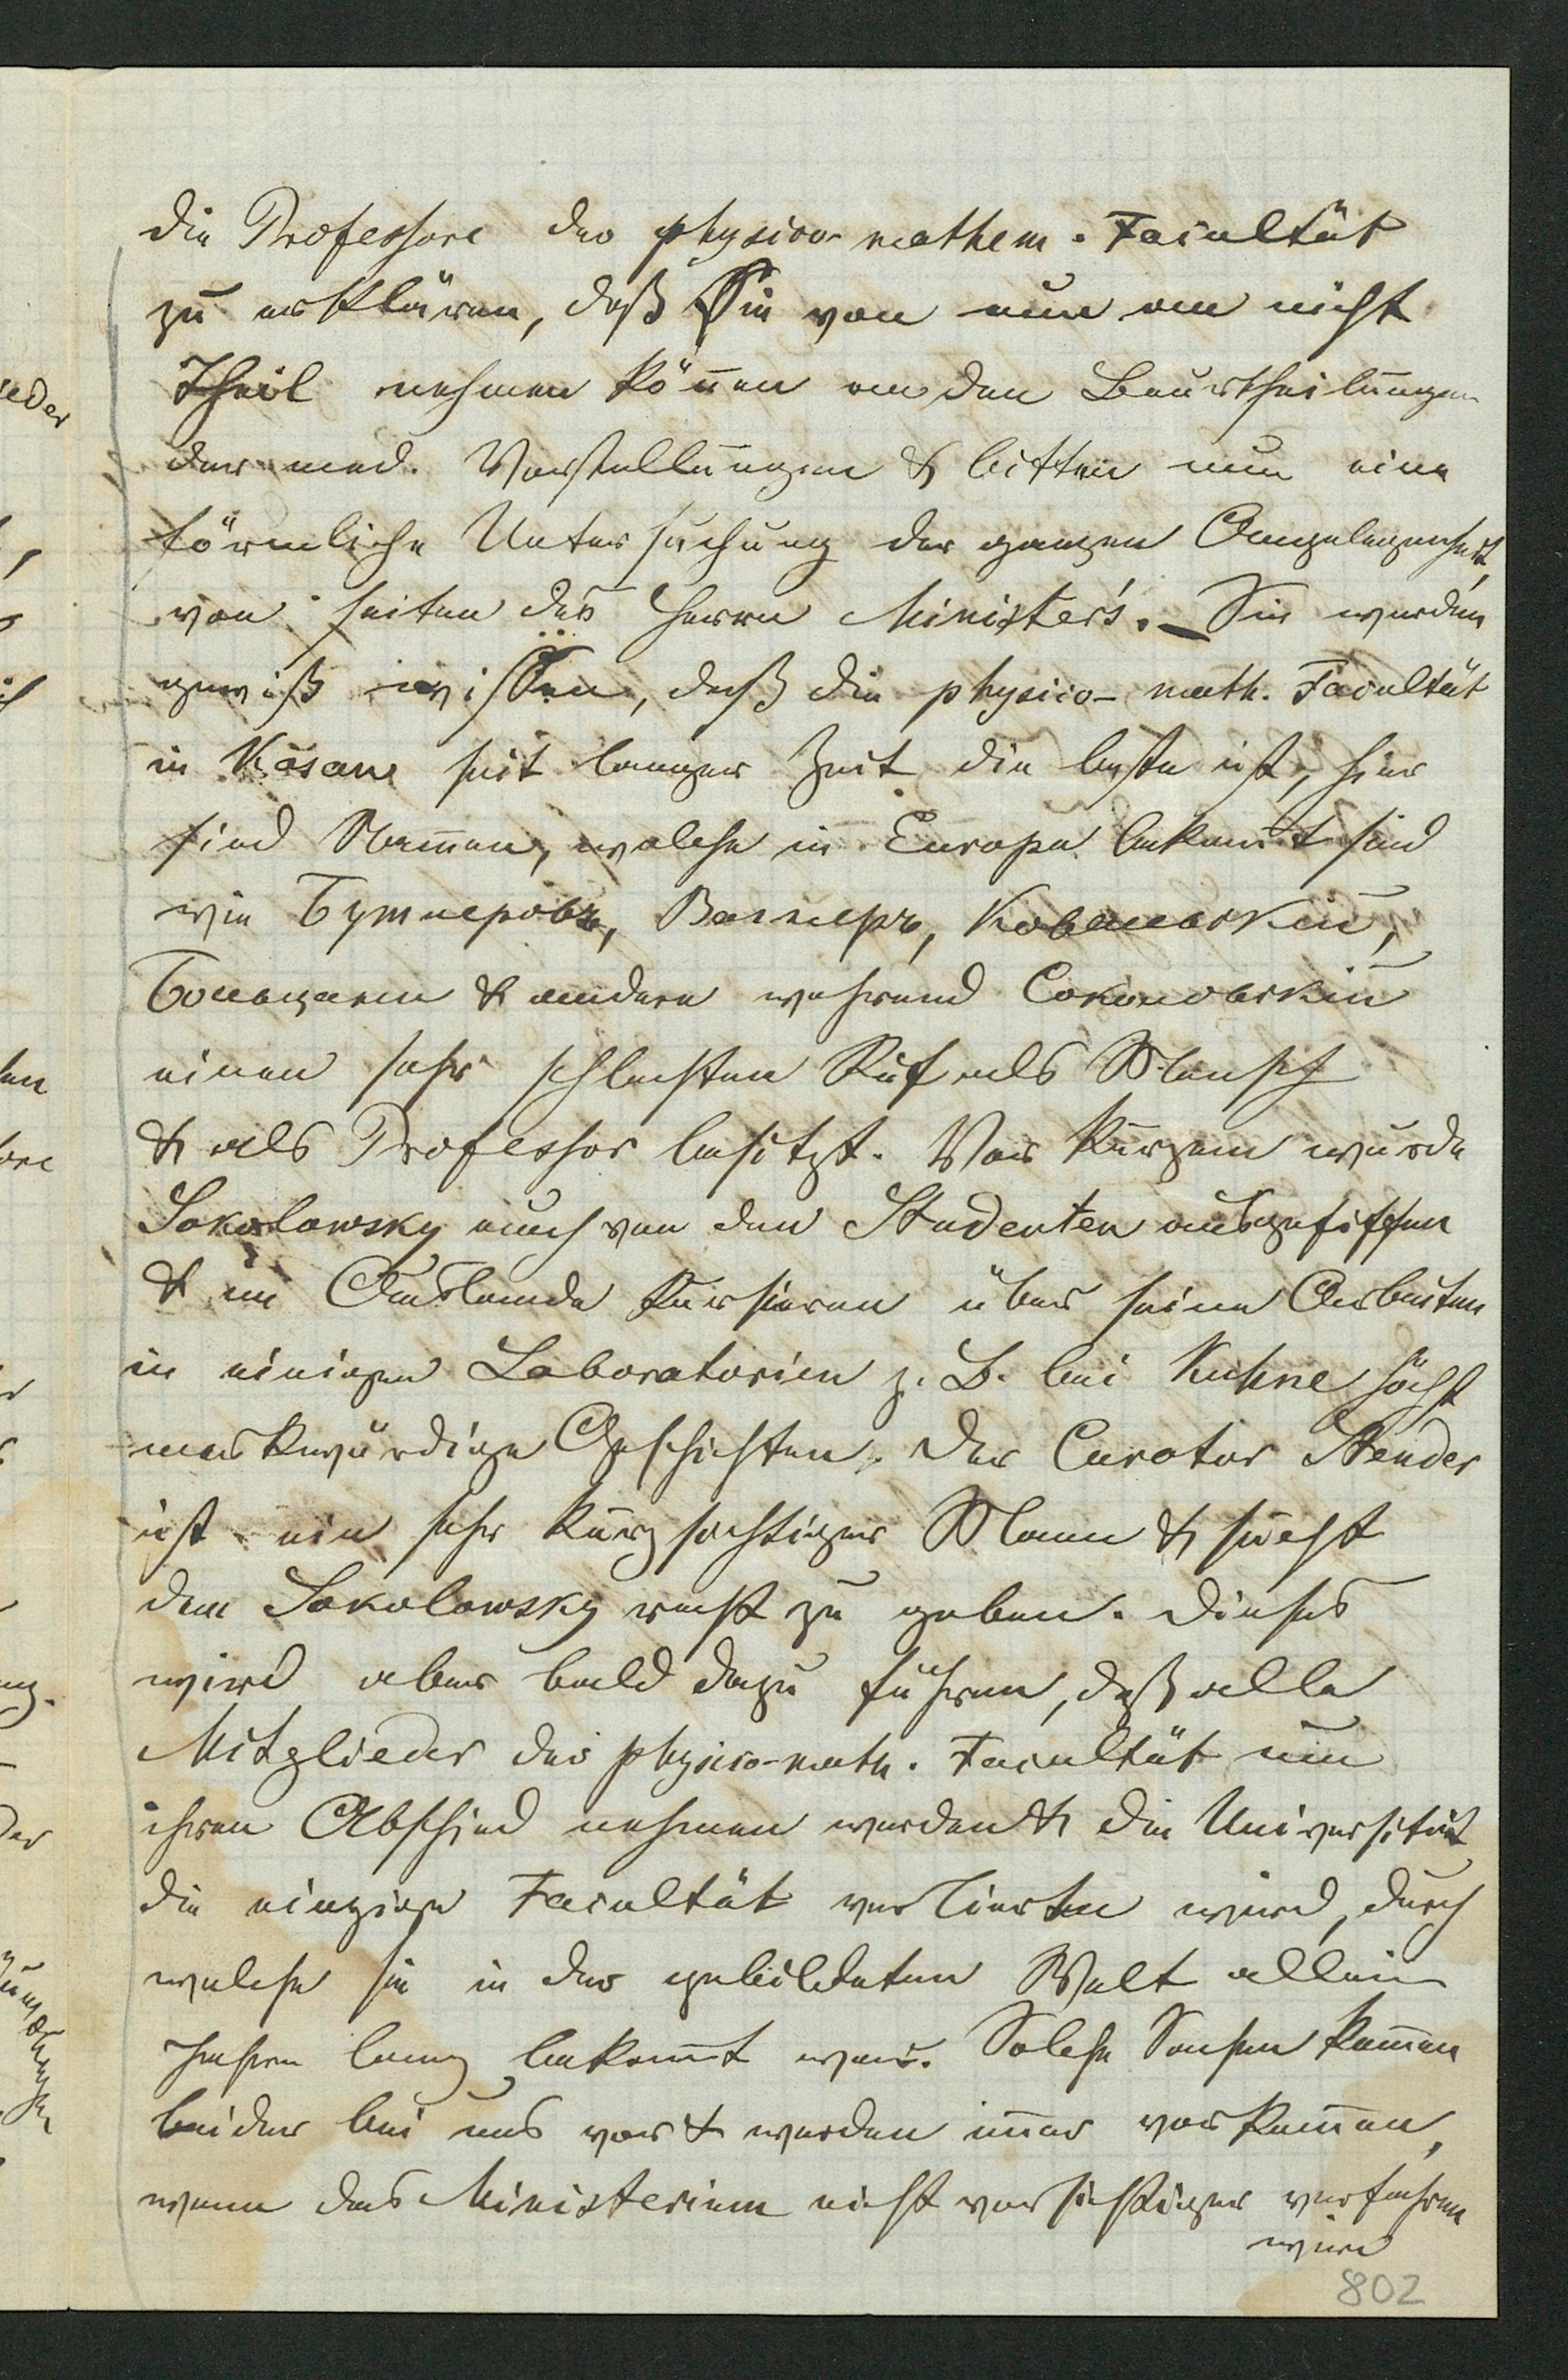 die Professore der physico-mathem. Facultät
zu erklären, daß Sie von nun an nicht
Theil nehmen können an den Beurtheilungen
der med. Vorstellungen & bitten nun eine
förmliche Untersuchung der ganzen Angelegenheit,
von seiten des Herrn Minister's. – Sie werden
gewiß wissen, daß die physico-math. Facultät
in Kasan seit langer Zeit die beste ist, hier
sind Namen, welche in Europa bekannt sind
wie Бутлеровъ, Вагнеръ, Ковалевскій,
Больцани & andere während Соколовскій
einen sehr schlechten Ruf als Mensch
& als Professor besitzt. Vor kurzem wurde
Sokolowsky auch von den Studenten ausgepfiffen
& im Auslande kursieren über seine Arbeiten
in einigen Laboratorien z. B. bei Kuhne höchst
merkwürdige Geschichten. Der Curator Stender
ist ein sehr kurzsichtiger Mann & sucht
dem Sokolowsky recht zu geben. Dieses
wird aber bald dazu führen, daß alle
Mitglieder der physico-math. Facultät um
ihren Abschied nehmen werden & die Universität
die einzige Facultät verlieren wird, durch
welche sie in der gebildeten Welt allein
Jahren lang bekannt war. Solche Sachen kommen
leider bei uns vor & werden immer vorkommen,
wenn das Ministerium nicht vorsichtiger verfahren
wird
802